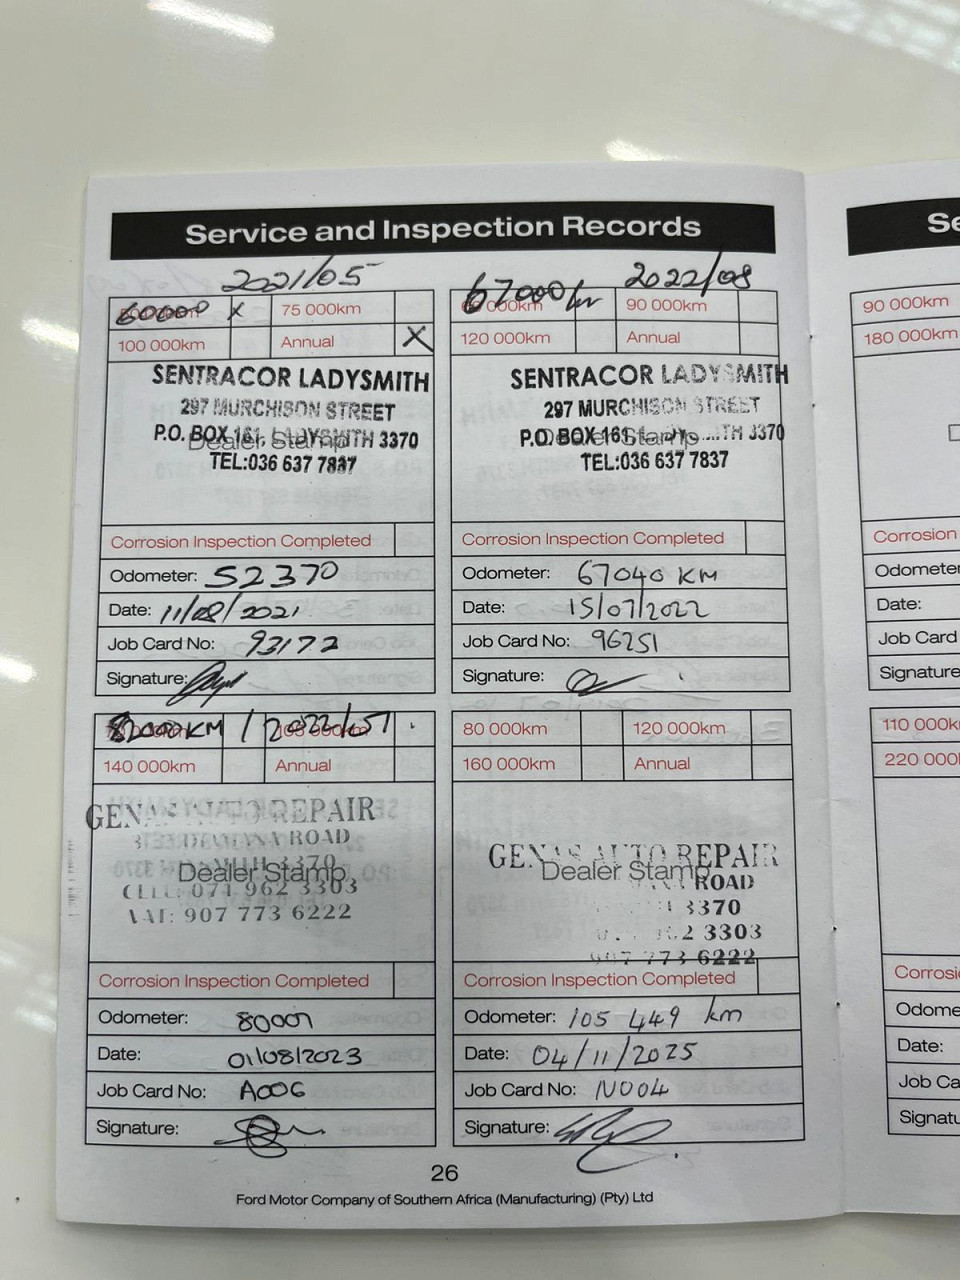 Service and Inspection Records
2021/05
60000 X 75 000km
100 000km Annual X
SENTRACOR LADYSMITH
297 MURCHISON STREET
P.O. BOX 161, LADYSMITH 3370
Dealer Stamp
TEL:036 637 7837
Corrosion Inspection Completed
Odometer: 52370
Date: 11/08/2021
Job Card No: 93172
Signature:
2022/08
67000km 90 000km
120 000km Annual
SENTRACOR LADYSMITH
297 MURCHISON STREET
P.O. BOX 161 3370
Dealer Stamp
TEL:036 637 7837
Corrosion Inspection Completed
Odometer: 67040 KM
Date: 15/07/2022
Job Card No: 96251
Signature:
KM / 2022/
140 000km Annual
GENAS AUTO REPAIR
ROAD
3370
Dealer Stamp
CELL: 071 962 3303
VAT: 907 773 6222
Corrosion Inspection Completed
Odometer: 80001
Date: 01/08/2023
Job Card No: A006
Signature:
80 000km 120 000km
160 000km Annual
GENAS AUTO REPAIR
Dealer Stamp
ROAD
3370
3303
907 773 6222
Corrosion Inspection Completed
Odometer: 105 449 km
Date: 04/11/2025
Job Card No: N004
Signature:
26
Ford Motor Company of Southern Africa (Manufacturing) (Pty) Ltd
Se
90 000km
180 000km
Corrosion
Odometer
Date:
Job Card
Signature
110 000k
220 000
Corrosi
Odome
Date:
Job Ca
Signatu